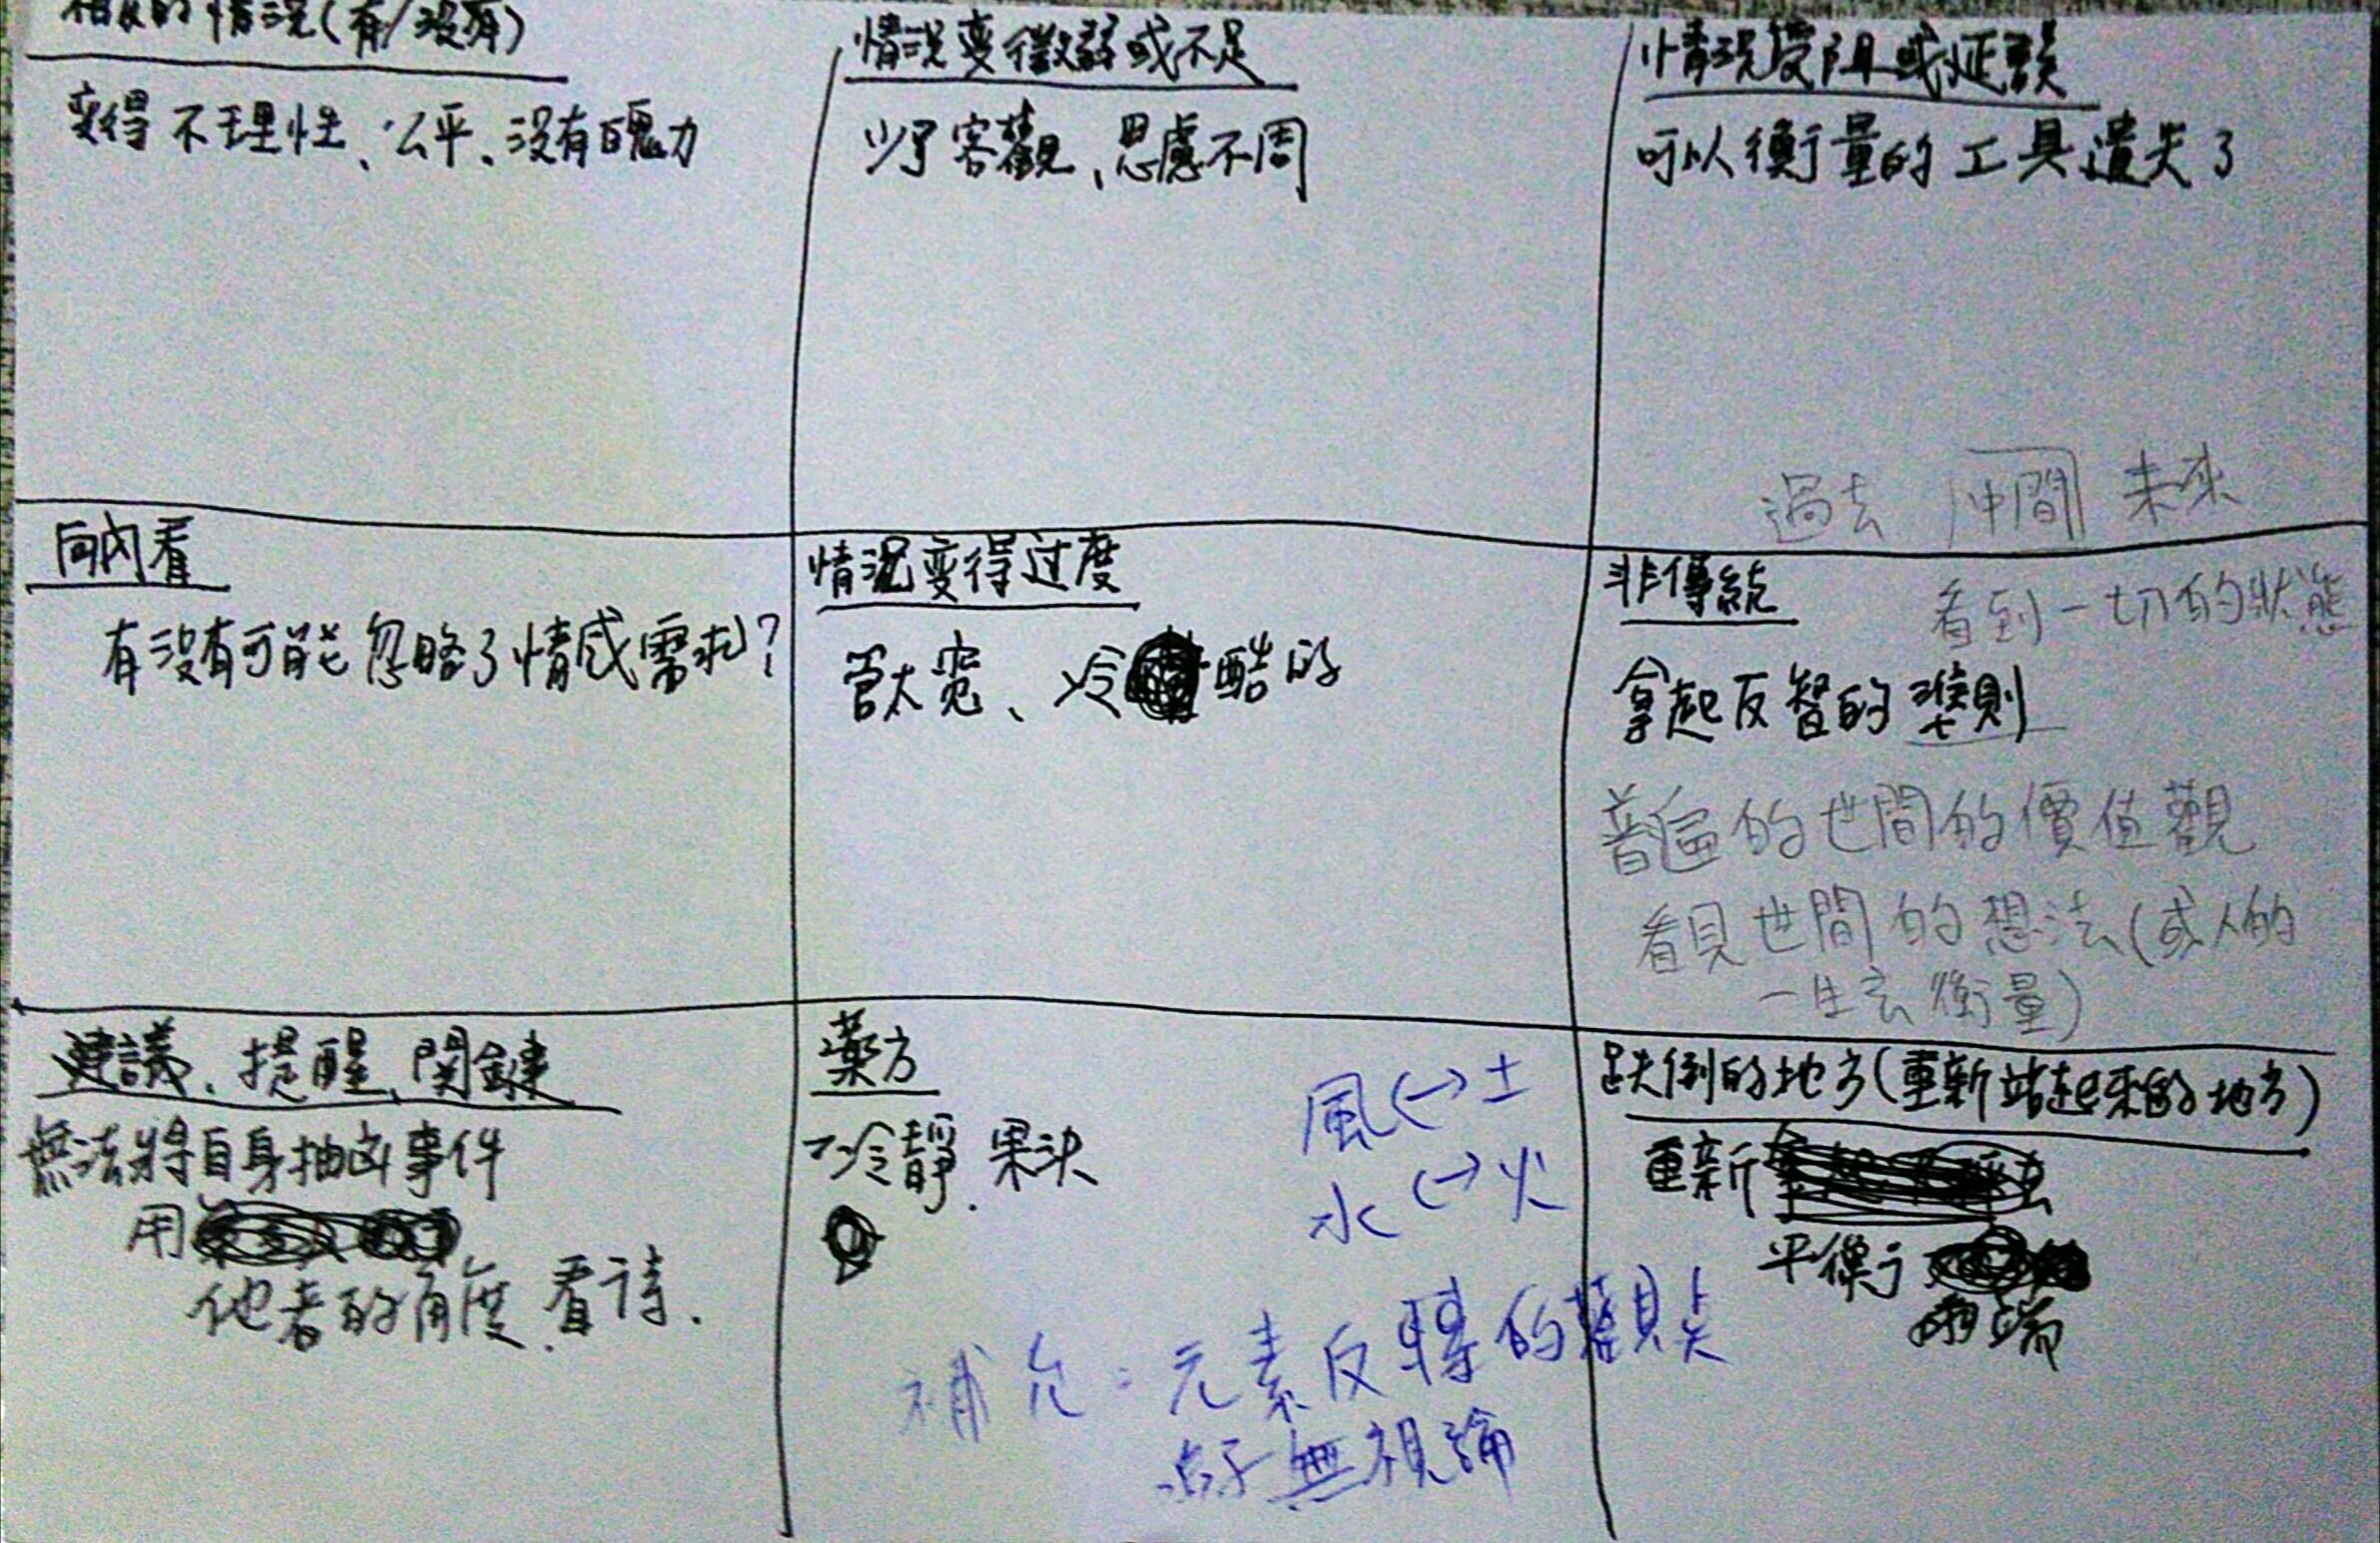 相反的情況(有/沒有)
变得不理性、公平、沒有魄力
情況变微弱或不足
少了客觀、思慮不周
情況受阻或延誤
可以衡量的工具遺失了
過去 中間 未來
向内看
有沒有可能忽略了情感需求?
情況变得过度
管太寬、冷酷的
非傳統
看到一切的狀態
拿起反智的準則
普遍的世間的價值觀
看見世間的想法(或人的
一生去衡量)
建議、提醒、関鍵
無法將自身抽出事件
用
他者的角度看待.
薬方
冷靜.果決
風↔土
水↔火
補充:元素反轉的觀點
無視論
跌倒的地方(重新站起來的地方)
重新
平衡
兩端